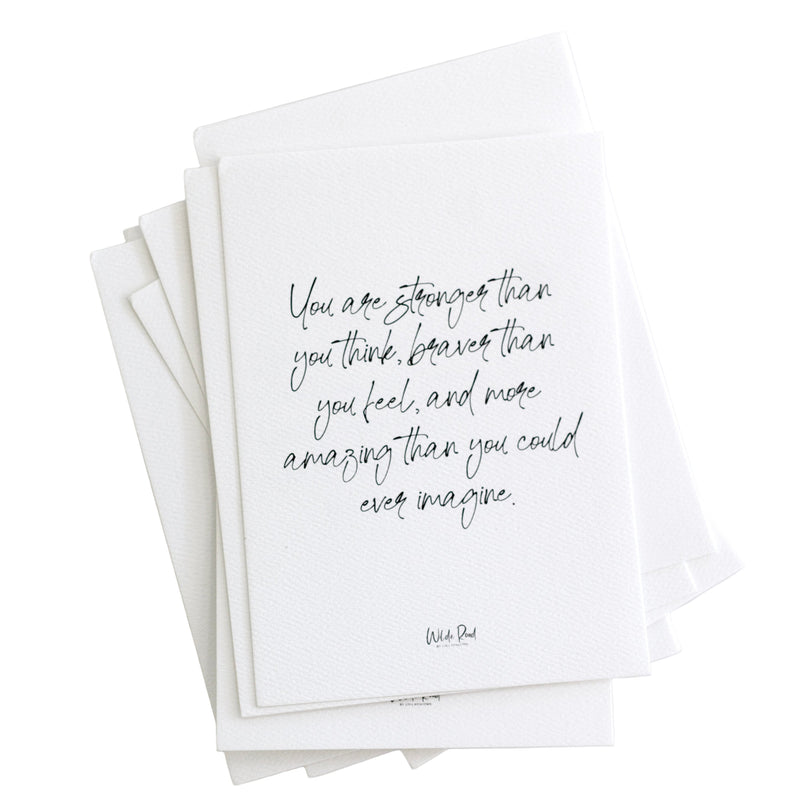 You are stronger than
you think, braver than
you feel, and more
amazing than you could
ever imagine.
Wilde Road